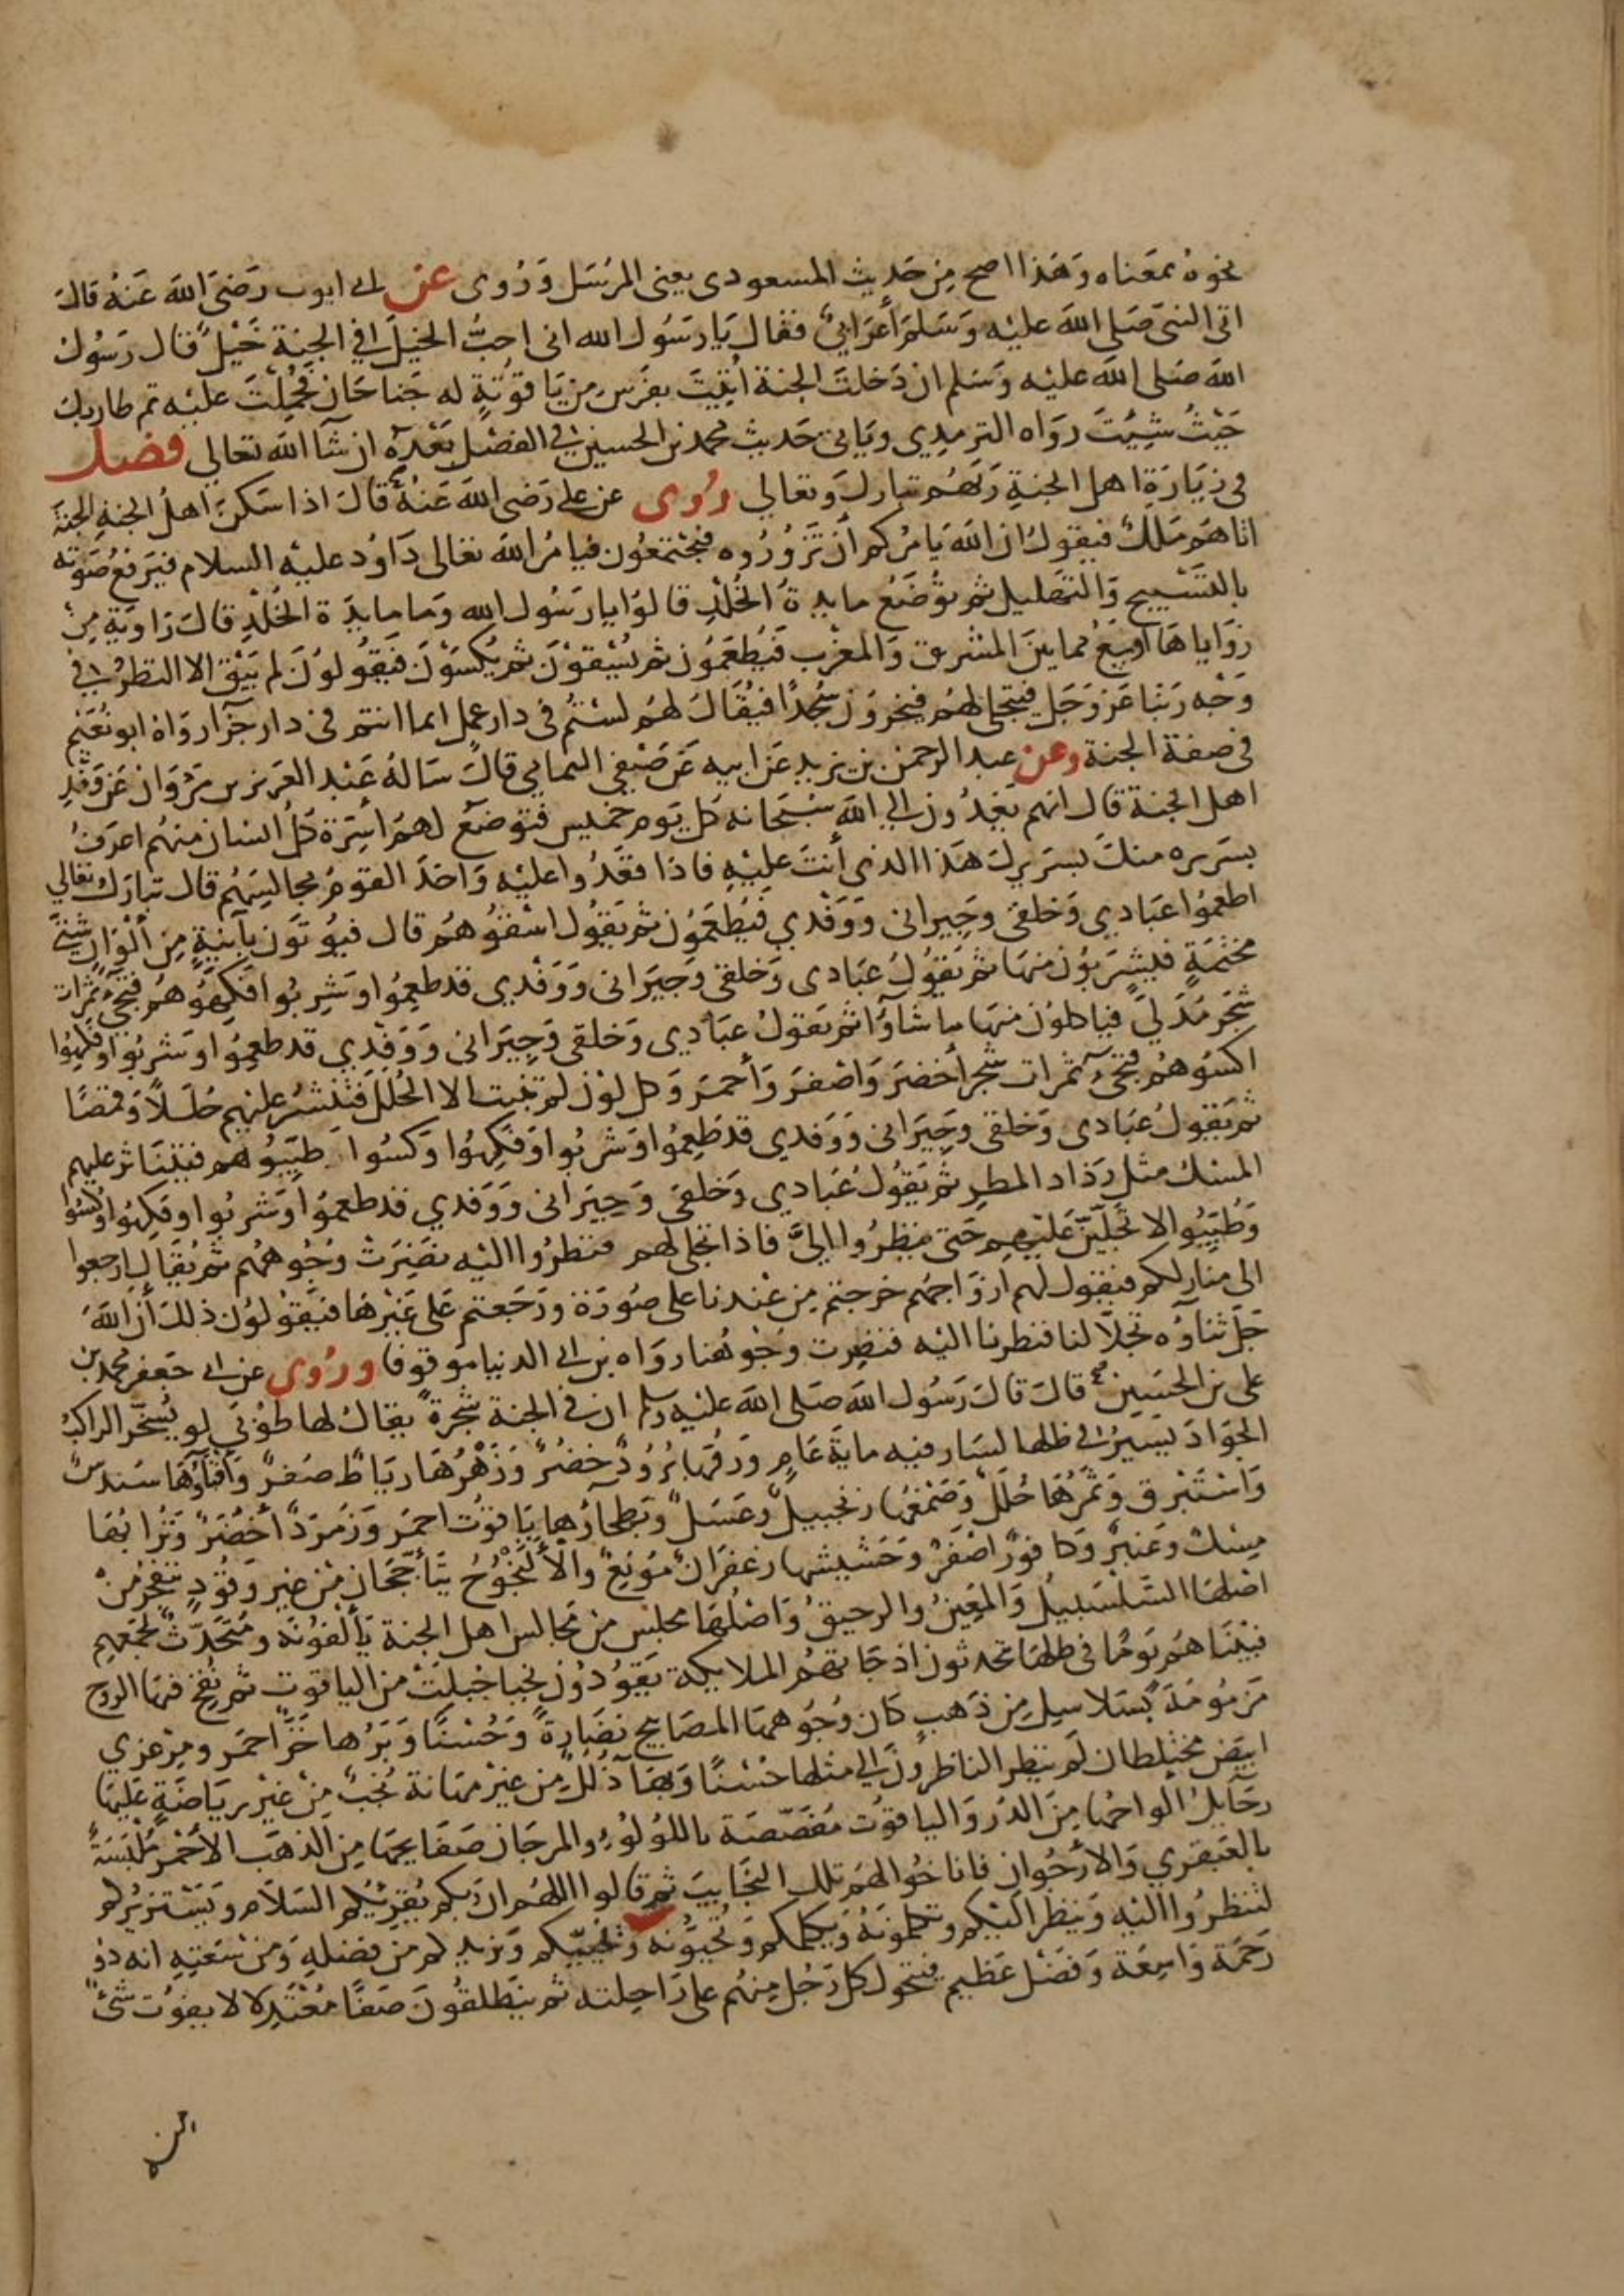 نحوه بمعناه وَهَذا اصح مِن حَديث المسعودى يعنى المرسَل وَرُوى عن ابى ايوب رَضىَ الله عَنهُ قالَ
اتى النبىَّ صَلى الله عليْه وَسَلم اَعرَابىٌّ فقال يَا رسَوُل الله انى احبُّ الخيلَ افي الجنة خَيْلٌ قال رسَوُل
الله صَلى الله عليْه وسَلم ان دَخلتَ الجنة اُتِيتَ بفرَسٍ مِن يَاقوُتةٍ له جَناحَان فَحُمِلْتَ عليْه ثم طار بك
حَيْثُ شِيْتَ رَوَاه الترمِدِي ويَاتى حَديث محمد بن الحسين فى الفصْل بَعْدَهُ ان شآ الله تعالي فصل
فى زيَارَةِ اهل الجنةِ رَبَّهُم تبارك وتعالي رُوى عن على رَضى الله عَنهُ قالَ اذا سَكنَ اهلُ الجنةِ الجنةَ
اتاهَم مَلكٌ فيقولُ ان الله يَامُركم أن تَزُورُوه فيَجْتمعُون فيَامُر الله تعالى دَاوُد عليْه السلام فيَرفعُ صَوتَه
بالتسْبيح وَالتهليل ثم توُضَعُ مايدةُ الخُلْدِ قالوُا يا رسَوُل الله وَما مايدَة الخُلْدِ قالَ زاوَيَة مِنْ
زوَاياهَا اَوسَعُ مما بينَ المشرِق وَالمغرب فَيُطعَمُون ثم يُسْقوْنَ ثم يُكسَوْنَ فيَقوُلوُنَ لم يَبْق الا النظرُ فى
وَجْه رَبّنا عَزوَجَل فيَتجلى لهُم فيَخرّوُن سُجّدًا فيُقَالُ لهُم لسْتُم فى دار عمل انما انتم فى دار جزآ رَوَاهُ ابو نُعَيْم
فى صفة الجنة وعن عبد الرحمن بن يزيد عَن ابيه عَن صَيْفي اليمَامي قالَ سَالهُ عَبْد العَزيز بن مَرْوَان عَن وَفْدِ
اهل الجنة قال انهم يَفِدُون الي الله سُبْحَانه كل يَوم خميس فتوضَعُ لهُم اسِرَّة كلُ انسان منهُم اعرَفُ
بسَريره منكَ بسَريرك هَذا الذى أنتَ عليْهِ فاذا قعَدُوا عليْه وَاخَذ القومُ مجالِسَهُم قال تبارك تعالي
اطعِمُوا عبَادي وَخلقى وجِيرانى وَوَفْدي فيُطعَمُون ثم يَقوُل اسْقوُهُم قال فيُوتَون بآنيةٍ مِن أَلْوَانٍ شتىَّ
مختمَةٍ فيشرَبوُن منهَا ثم يَقوُلُ عبَادى وَخلقى وَجيَرانى وَوَفْدي قد طعِمُوا وشَرِبُوا فَكِّهُوهُم فتجىُ ثمرَات
شجَر مُدَلّي فيَاكلوُن منهَا ما شَآؤا ثم يَقولُ عبَادي وَخلقى وَجيَرانى وَوَفْدي قد طعِمُوا وَشرِبُوا وفَكِهُوا
اكسُوهُم فتجىُ ثمرات شجر أخضَرَ وَاصْفرَ وَأحمرَ وَكل لوْن لم تنبت الا الحُلل فتنشرُ عليْهم حُلَلاً وَقمصًا
ثم يَقوُلُ عبَادى وَخلقى وَجِيَرانى وَوَفدي قد طَعِمُوا وَشرِبُوا وَفكِهُوا وَكسُوا طَيّبُوهم فيَتناثر عليهم
المسْك مثل رَذاد المطرِ ثم يَقوُلُ عبَادي وَخلقىَ وَجِيَرانى وَوَفدي قد طعمُوا وَشربُوا وفَكِهُوا وكُسُوا
وَطُيِّبُوا لاتَجَلّيَنَّ عَليْهِم حَتى ينظرُوا اليَّ فاذا تجلى لهم فنظرُوا اليْه نضِرَتْ وُجُوههُم ثم يُقَال ارجعوا
الى منازلكم فيقول لهم ازوَاجهُم خرجتم مِن عنْدنا على صُورَة ورَجَعتم عَلى غيْرهَا فيَقوُلوُن ذلكَ أن الله
جَلَّ ثناؤه تجلّا لنا فنظرنا اليْه فنضِرت وُجُوهُنا رَوَاه بن ابى الدنيا موقوفا ورُوى عن ابى جعفر محمد بن
على بن الحسَين قالَ قالَ رَسُول الله صَلى الله عليْه وسلم ان فى الجنة شجَرة يقالُ لها طوُبَي لو يُسَخّر الراكبُ
الجوَادَ يسيرُ فى ظلها لسَار فيه مايَة عَامٍ وَرقهَا بُرُودٌ خضُرٌ وَزَهْرُهَا ريَاطٌ صُفرٌ وَأفنَاؤُهَا سَندسٌ
وَاسْتَبْرق وَثمَرُهَا حُلَلٌ وَصَمْغهَا زنجبيلٌ وعَسَلٌ وَبَطحآؤها يَاقوُت احمَر وَزمرَدٌ أخْضَرٌ وَتُرابُهَا
مِسْكٌ وَعَنبرٌ وَكافورٌ اصْفرٌ وَحَشيشهَا زعفَرانٌ مُونِعٌ وَالْأَلنْجُوُجُ يَتأججَان مِن غير وَقوُدٍ يتفجرُ مِنْ
اصْلهَا السَّلسَبيلُ وَالمَعِينُ والرحيقُ وَاصْلُهَا مجلسٌ من مجَالس اهل الجنة يَألَفوُنَه ومُتَحَدَّثٌ يجمعهم
فبَيْنَاهُم يَومًا فى ظلهَا يتحدثون اذ جَاتهُم الملايكة يَقوُدُون نجبا جبلَتْ من الياقوت ثم نُفِخ فيهَا الروح
مَزمُومَة بسَلاسِل مِن ذهَبٍ كان وُجُوههَا المصَابيح نضَارةً وَحُسْنًا وَبَرُها خَزٌّ احمَر ومِرْعزي
ابيَض مختلِطان لم ينظر الناظرُون الى مثلها حُسْنًا وَبهَآ ذُللٌ مِن غيْر مهَانة نُجُبٌ مِنْ غيْر ريَاضَةٍ عَليهَا
رحَايلُ الواحُهَا مِن الدُر وَاليَاقوُت مُفَصَّصَة باللوُلوُ والمرجَان صَفَايحهَا مِن الذهَب الأحْمر مُلْبَسَةٌ
بالعَبقري وَالارجُوان فاناخُوا لهَم تلك النجَايبَ ثم قالوا اللهُم ان ربكم يُقرِيُكم السَلام وَيَسْتزيرُكم
لتنظرُوا اليْه وَينظرُ اليْكم وتكلموُنَهُ وَيكلمكم وتُحَيّوُنَه وَيُحيِّيكم وَيزيدكم من فضلهِ وَمِنْ سَعَتِهِ انه ذو
رَحمَة وَاسِعَة وَفضْل عَظيم فيتحول كل رَجُل مِنهُم على رَاحِلته ثم ينطلقُونَ صَفًا مُعْتَدِلا لا يفوُت شىٌ